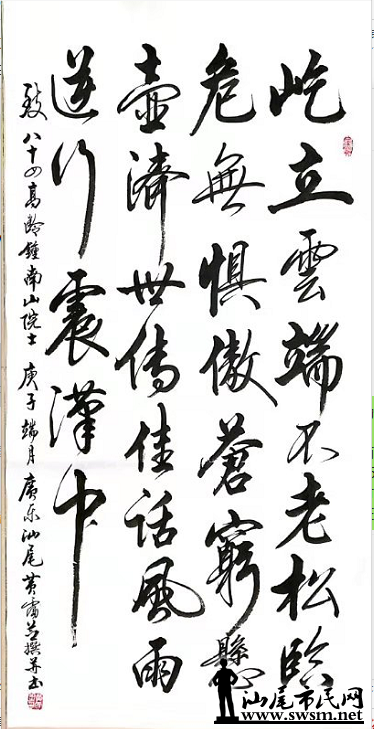 屹立雲端不老松臨
危無惧傲蒼窮懸
壺濟世傳佳話風雨
逆行震漢中
致八十四高龄鍾南山院士 庚子端月廣东汕尾黄撰并书
汕尾市民网
www.swsm.net